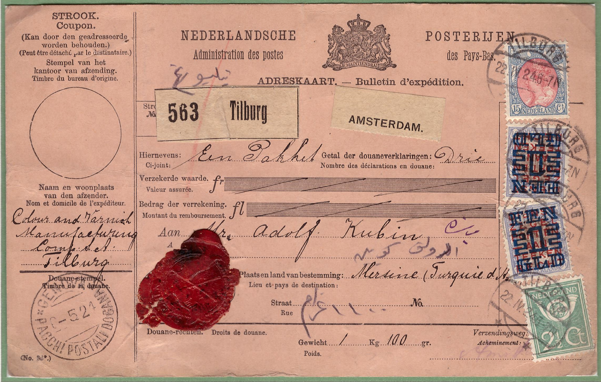 STROOK.
Coupon.
(Kan door den geadresseerde
worden behouden.)
(Peut être détaché par le destinataire.)
Stempel van het
kantoor van afzending.
Timbre du bureau d'origine.
Naam en woonplaats
van den afzender.
Nom et domicile de l'expéditeur.
Colour and Varnish
Manufacturing
Tilburg
Douane-stempel.
Timbre de la douane.
PACCHI POSTALI DOGANA
-5.24
NEDERLANDSCHE POSTERIJEN
Administration des postes des Pays-Bas.
ADRESKAART. — Bulletin d'expédition.
563 Tilburg
AMSTERDAM.
Hiernevens: Een Pakket Getal der douaneverklaringen: Drie
Ci-joint: Nombre des déclarations en douane:
Verzekerde waarde. fr
Valeur assurée.
Bedrag der verrekening. fl
Montant du remboursement.
Aan Mr. Adolf Kubin
A
Plaats en land van bestemming: Mersine Turquie d'
Lieu et pays de destination:
Straat No.
Rue
Douane-rechten. Droits de douane.
Gewicht 1 Kg. 100 gr.
Poids.
Verzendingsweg:
Acheminement:
TILBURG
TILBURG
NEDERLAND
EEN
GLD
EEN
GLD
Ct